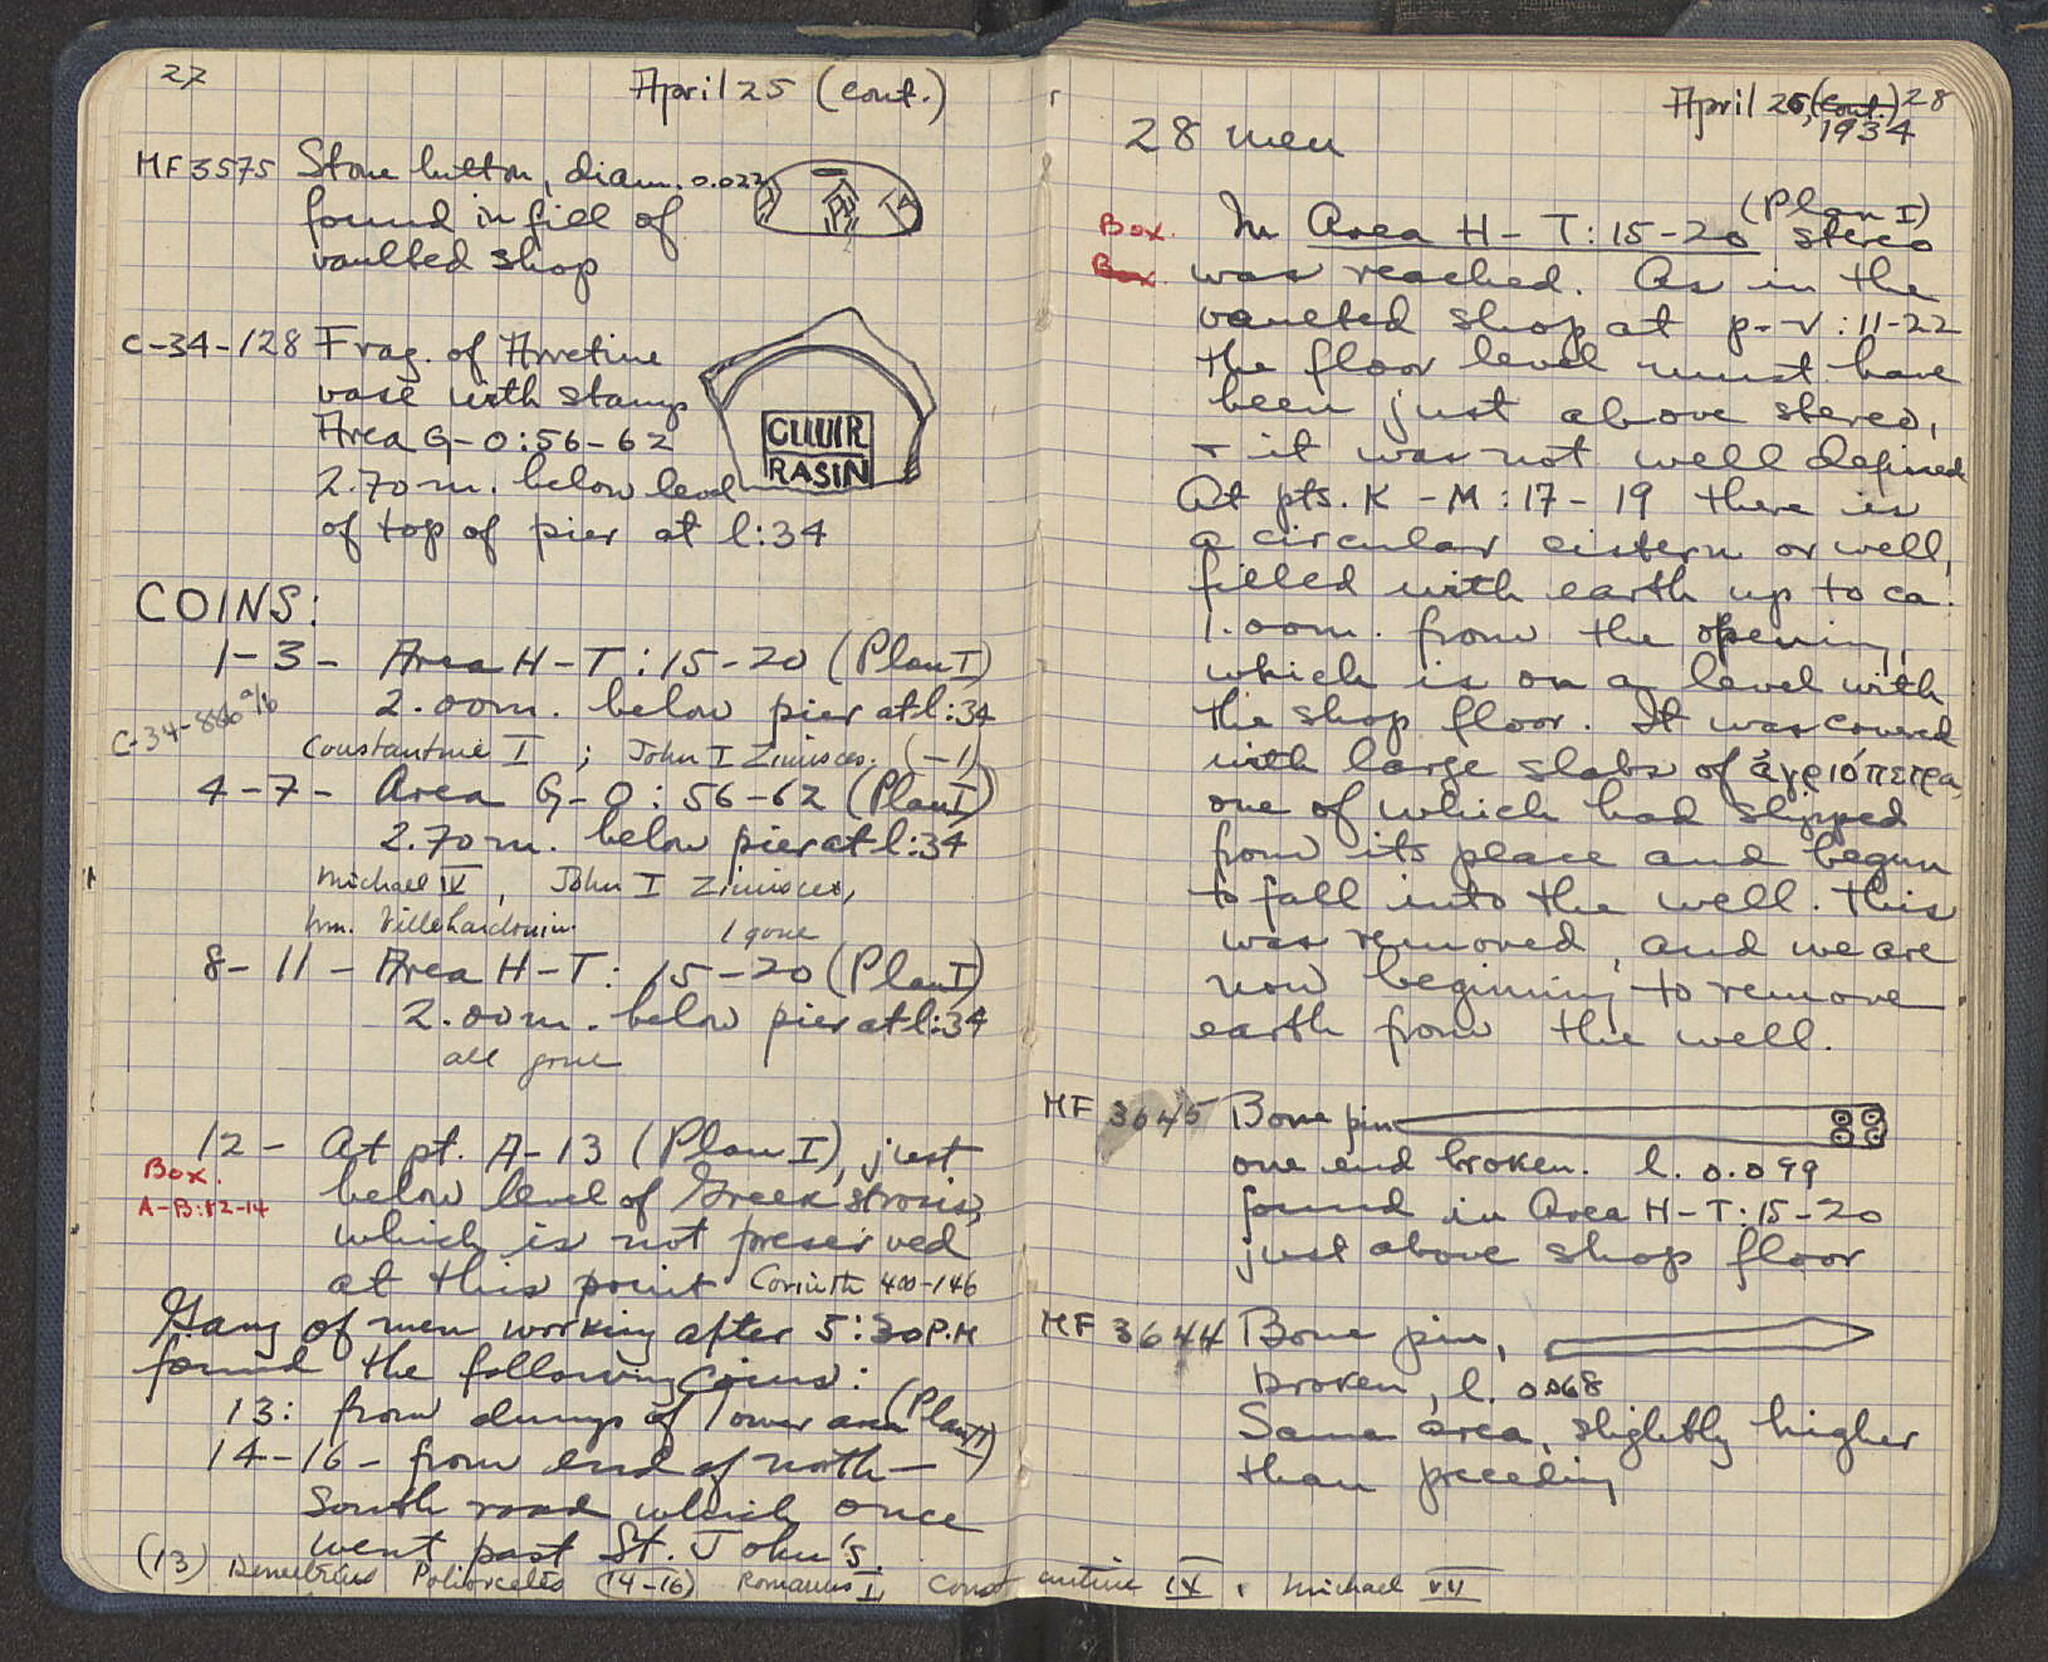 27
April 25 (cont.)
MF 3575 Stone button, diam. 0.022
found in fill of
vaulted shop
C-34-128 Frag. of Arretine
vase with stamp
Area G-O:56-62
2.70 m. below level
of top of pier at l:34
RASIN
COINS:
1-3 - Area H-T:15-20 (Plan I)
2.00m. below pier at l:34
C-34-886 a/b
Constantine I ; John I Zimisces. (-1)
4-7 - Area G-O:56-62 (Plan I)
2.70 m. below pier at l:34
Michael IV, John I Zimisces,
Wm. Villehardouin. 1 gone
8-11 - Area H-T: 15-20 (Plan I)
2.00m. below pier at l:34
all gone
12 - At pt. A-13 (Plan I), just
Box.
below level of Greek strosis,
A-B:12-14
which is not preserved
at this point Corinth 400-146
Gang of men working after 5:30 P.M
found the following coins:
13: from dump of lower area (Plan II)
14-16 - from end of north-
south road which once
went past St. John's.
(13) Demetrius Poliorcetes (14-16) Romanus I, Constantine IX, Michael VII
April 26, (cont.) 28
1934
28 men
(Plan I)
Box. In Area H-T:15-20 stereo
Box. was reached. As in the
vaulted shop at p-v:11-22
the floor level must have
been just above stereo,
+ it was not well defined
At pts. K-M:17-19 there is
a circular cistern or well,
filled with earth up to ca.
1.00m. from the opening,
which is on a level with
the shop floor. It was covered
with large slabs of ἀγριόπετρα,
one of which had slipped
from its place and begun
to fall into the well. This
was removed, and we are
now beginning to remove
earth from the well.
MF 3645 Bone pin
one end broken. l. 0.099
found in Area H-T:15-20
just above shop floor
MF 3644 Bone pin,
broken, l. 0.068
Same area, slightly higher
than preceding